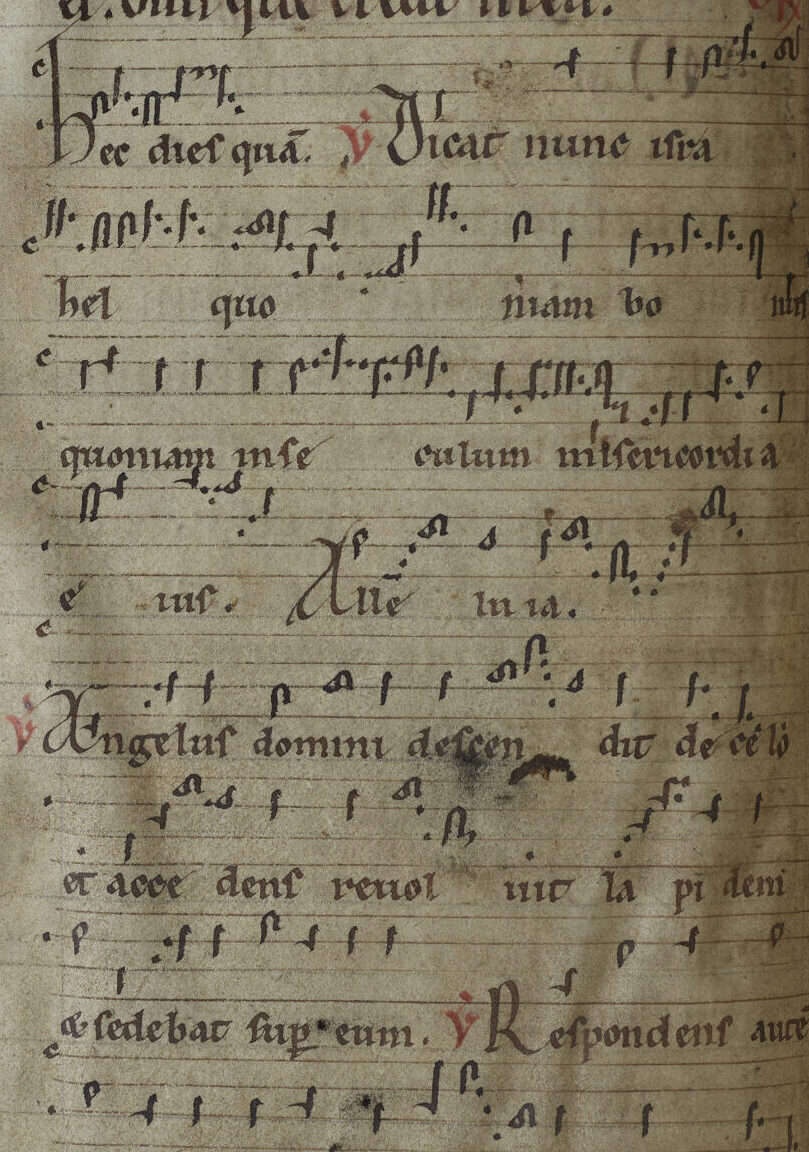 a. omni quae erat mea.
Hec dies quā. V̇ Dicat nunc isra
hel quo niam bo nus
quoniam in se culum misericordi a
e ius. Alle lu ia.
V̇ Angelus domini descen dit de celo
et acce dens reuol uit la pi dem
& sedebat sup eum. V̇ Respondens autē